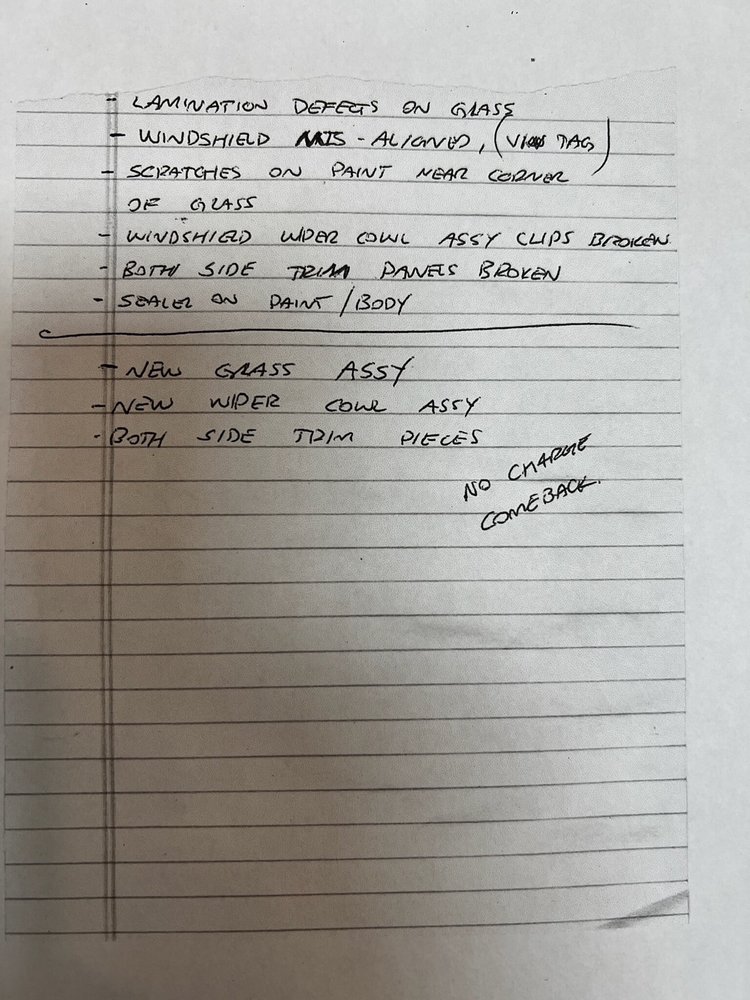 - LAMINATION DEFECTS ON GLASS
- WINDSHIELD MIS-ALIGNED, (VIN TAG)
- SCRATCHES ON PAINT NEAR CORNER
OF GLASS
- WINDSHIELD WIPER COWL ASSY CLIPS BROKEN
- BOTH SIDE TRIM PANELS BROKEN
- SEALER ON PAINT/BODY
- NEW GLASS ASSY
- NEW WIPER COWL ASSY
- BOTH SIDE TRIM PIECES
NO CHARGE
COMEBACK.